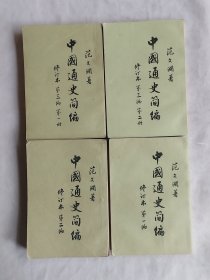 范文澜著
中國通史简编
修订本 第三编 第一册
范文澜著
中國通史简编
修订本 第三编 第二册
范文澜著
中國通史简编
修订本 第二编
范文澜著
中國通史简编
修订本 第一编